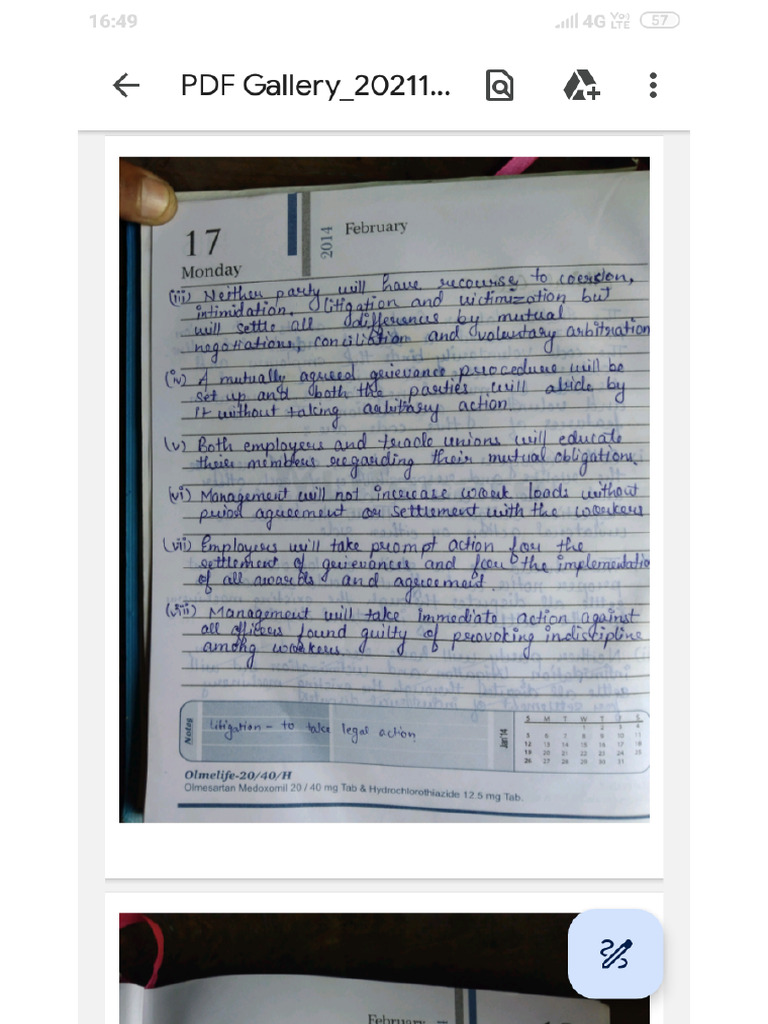 16:49
4G Vo) LTE 57
PDF Gallery_20211...
17
Monday
2014
February
(iii) Neither party will have recourse to coersion,
intimidation, litigation and victimization but
will settle all differences by mutual
negotiations, conciliation and voluntary arbitration
(iv) A mutually agreed grievance procedure will be
set up and both the parties will abide by
it without taking arbitrary action.
(v) Both employers and trade unions will educate
their members regarding their mutual obligations.
(vi) Management will not increase work loads without
prior agreement or settlement with the workers
(vii) Employers will take prompt action for the
settlement of grievances and for the implementatio
of all awards and agreement.
(viii) Management will take immediate action against
all officers found guilty of provoking indiscipline
among workers.
Notes
Litigation - to take legal action
Jan'14
S M T W T F S
1 2 3 4
5 6 7 8 9 10 11
12 13 14 15 16 17 18
19 20 21 22 23 24 25
26 27 28 29 30 31
Olmelife-20/40/H
Olmesartan Medoxomil 20 / 40 mg Tab & Hydrochlorothiazide 12.5 mg Tab.
February